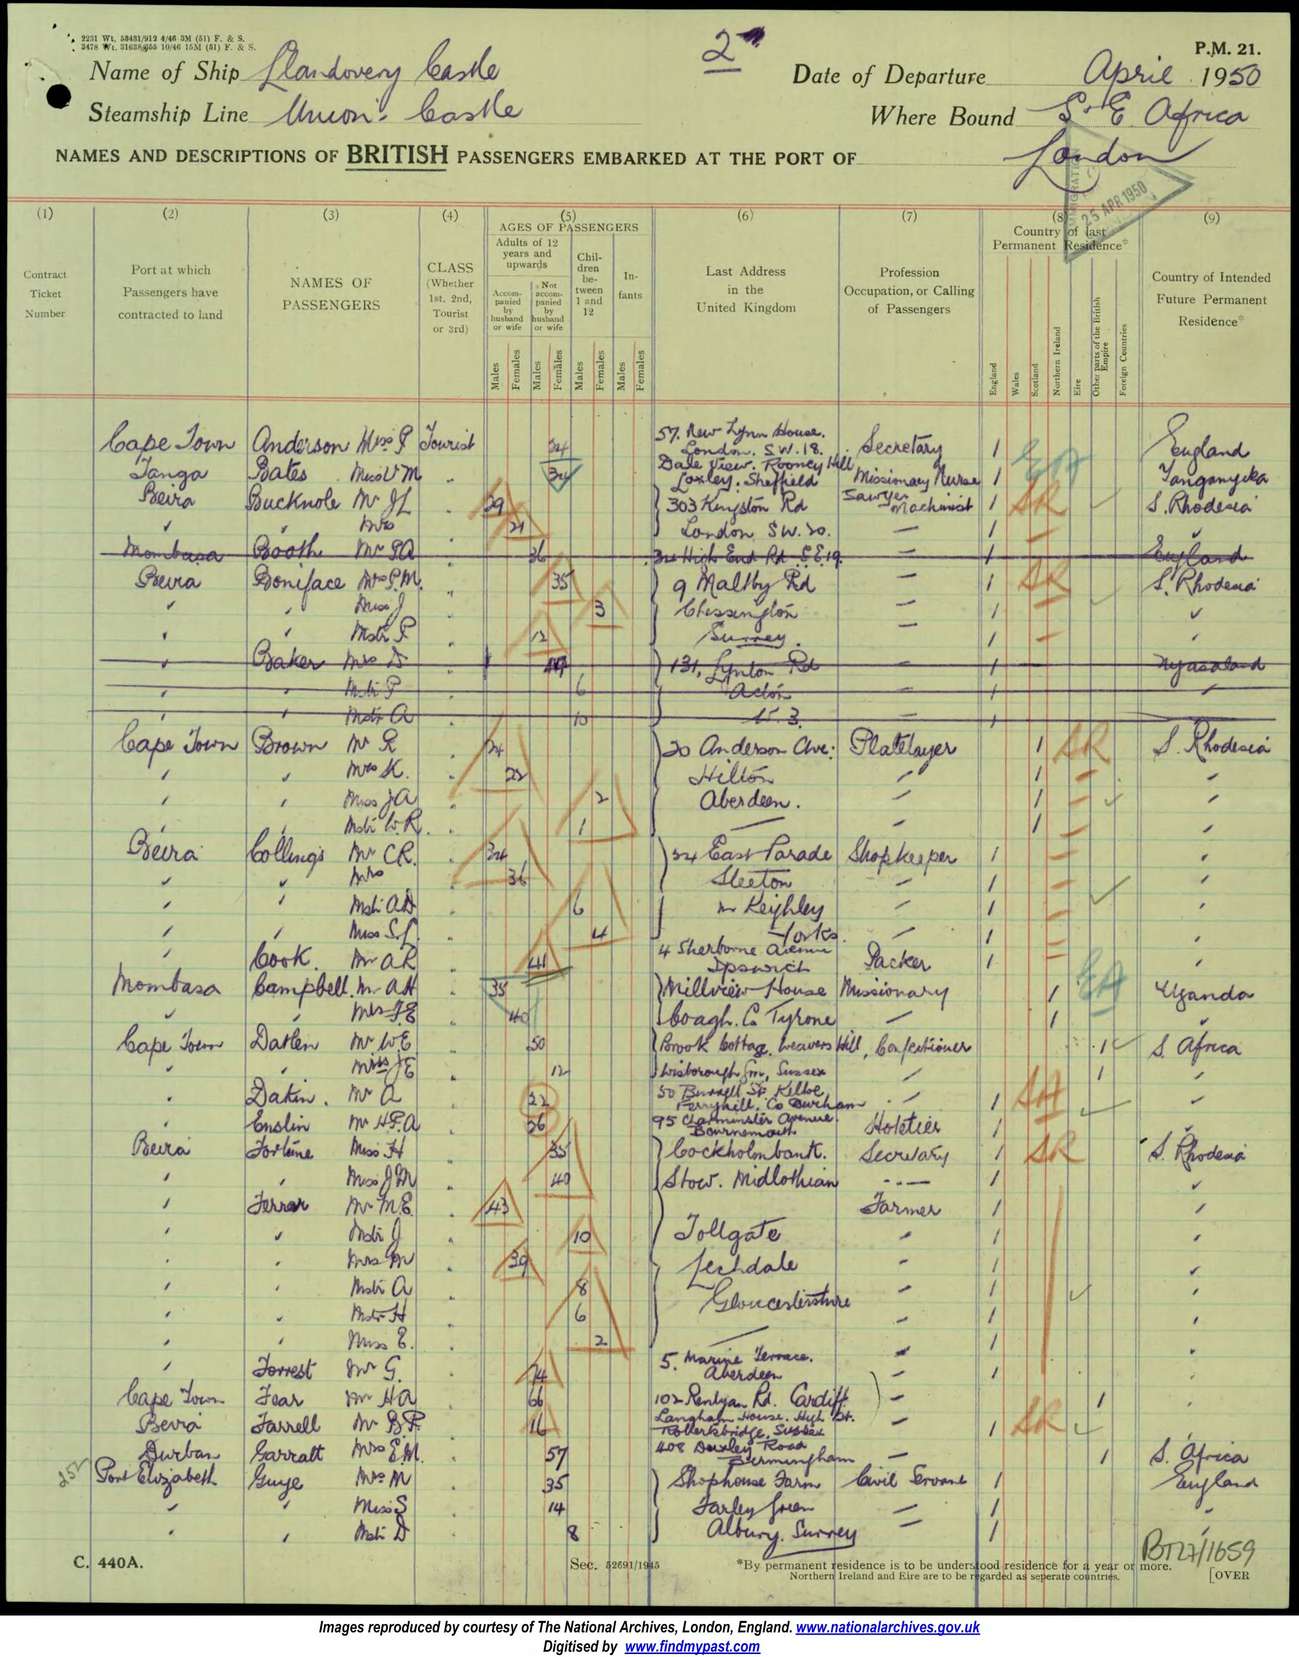 2231 Wt. 58431/912 4/46 3M (51) F. & S.
3478 Wt. 31638/655 10/46 15M (51) F. & S.
2
P.M. 21.
Name of Ship Llandovery Castle
Date of Departure April 1950
Steamship Line Union-Castle
Where Bound S. E. Africa
NAMES AND DESCRIPTIONS OF BRITISH PASSENGERS EMBARKED AT THE PORT OF London
25 APR 1950
(1) (2) (3) (4) (5) (6) (7) (8) (9)
Contract Ticket Number
Port at which Passengers have contracted to land
NAMES OF PASSENGERS
CLASS (Whether 1st, 2nd, Tourist or 3rd)
AGES OF PASSENGERS
Adults of 12 years and upwards
Accompanied by husband or wife
Not accompanied by husband or wife
Children between 1 and 12
Infants
Males Females Males Females Males Females Males Females
Last Address in the United Kingdom
Profession Occupation, or Calling of Passengers
Country of last Permanent Residence*
England Wales Scotland Northern Ireland Eire Other parts of the British Empire Foreign Countries
Country of Intended Future Permanent Residence*
Cape Town Anderson Miss P Tourist 34 57. New Lynn House. London. S.W.18. Secretary 1 England
Tanga Bates Miss V M " 34 Dale View. Rodney Hill Loxley. Sheffield Missionary Nurse 1 EA Tanganyika
Beira Bucknole Mr J L " 29 303 Kingston Rd Sawyer Machinist 1 SR S. Rhodesia
" " Mrs " 21 London S.W.20. — 1 "
Mombasa Booth Mr P A 36 34 High End Rd S.E.19. — 1 England
Beira Boniface Mrs P.M. " 35 9 Maltby Rd — 1 SR S. Rhodesia
" " Miss J " 3 Chessington — 1 "
" " Mstr P. " 12 Surrey. — 1 "
" Baker Mrs D " 131, Lynton Rd — 1 Nyasaland
" " Mstr P " 6 Acton — 1 "
" " Mstr A " 10 W.3. — 1
Cape Town Brown Mr R " 24 20 Anderson Ave: Platelayer 1 SR S. Rhodesia
" " Mrs K. " 22 Hilton " 1 "
" " Miss J A " 2 Aberdeen. " 1 "
" " Mstr W.R. " 1 — " 1 "
Beira Collings Mr C R. " 34 34 East Parade Shopkeeper 1 "
" " Mrs " 36 Steeton " 1 "
" " Mstr A D " 6 nr Keighley " 1 "
" " Miss S L " 4 Yorks. " 1 "
" Cook. Mr A R " 41 4 Sherborne Avenue Ipswich Packer 1 "
Mombasa Campbell. Mr A H " 35 Millview House Missionary 1 EA Uganda
" " Mrs F E " 40 Coagh. Co Tyrone — 1 "
Cape Town Darlen Mr W E " 50 Brook Cottage, Weavers Hill, Confectioner 1 S Africa
" " Miss J E " 12 Wisborough Grn, Sussex " 1 "
" Dakin. Mr A " 22 Kelloe Ferryhill. Co Durham " 1 SA "
" Enslin Mr H F A " 26 95 Charminster Avenue. Bournemouth Hotelier 1 "
Beira Fortune Miss H " 35 Cockholmbank. Secretary 1 SR S. Rhodesia
" " Miss J M " 40 Stow. Midlothian — 1 "
" Ferrar Mr M E. " 43 Farmer 1 "
" " Mstr J " 10 Tollgate " 1 "
" " Mrs M " 39 Lechdale " 1 "
" " Mstr A " 8 Gloucestershire " 1 "
" " Mstr H " 6 " 1 "
" " Miss E. " 2 — " 1 "
" Forrest Mr G. " 74 5. Marine Terrace. Aberdeen " 1 "
Cape Town Fear Mr H A " 66 102 Renlyan Rd. Cardiff — 1
Beira Farrell Mr B P. " 16 Langham House. High St. Robertsbridge, Sussex — 1 SR
Durban Garratt Mrs E M. " 57 408 Road Birmingham — 1 S. Africa
252 Port Elizabeth Guye Mrs M " 35 Shophouse Farm Civil Servant 1 England
" " Miss S " 14 Farley Green " 1 "
" " Mstr D " 8 Albury. Surrey " 1 "
BT27/1659
C. 440A.
Sec. 52691/1945
*By permanent residence is to be understood residence for a year or more.
Northern Ireland and Eire are to be regarded as seperate countries.
[OVER
Images reproduced by courtesy of The National Archives, London, England. www.nationalarchives.gov.uk
Digitised by www.findmypast.com